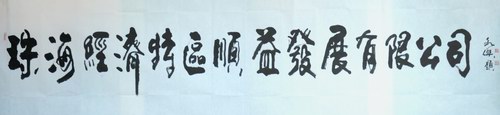 珠海經濟特區順益發展有限公司